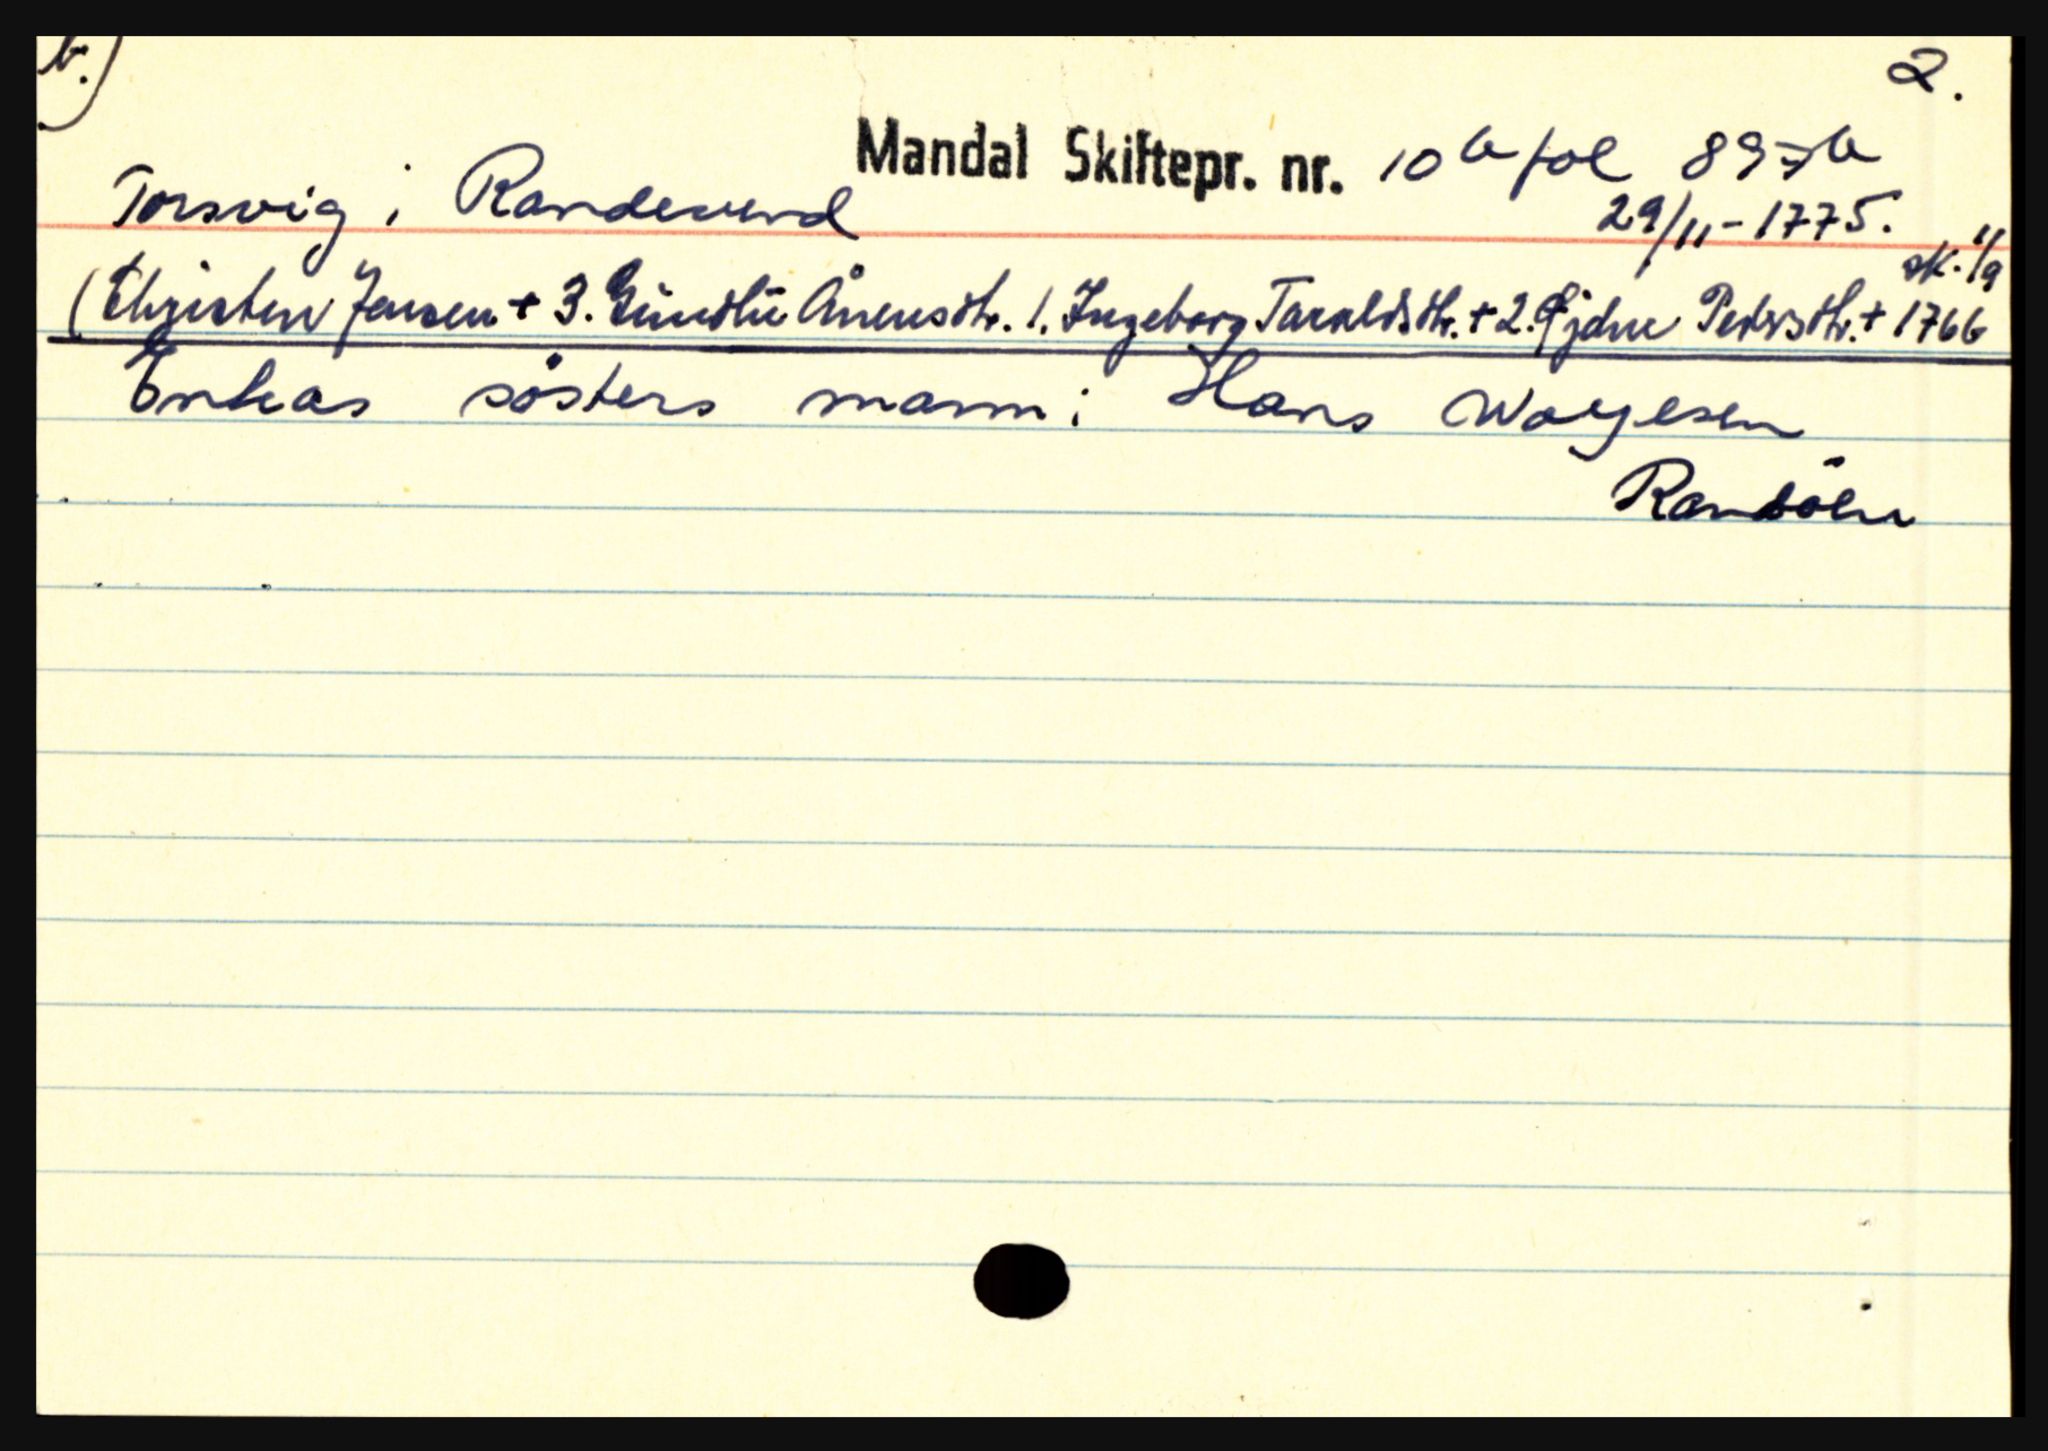 b.)
2.
Mandal Skiftepr. nr. 10 b fol 897b
Torsvig i Randesund
29/11-1775.
sk. 1/9
(Christen Jensen + 3. Gundlü Ånensdtr. 1. Ingeborg Taraldsdtr. + 2. Pedersdtr. + 1766
Enkas søsters mann: Hans Wagesen
Randöen